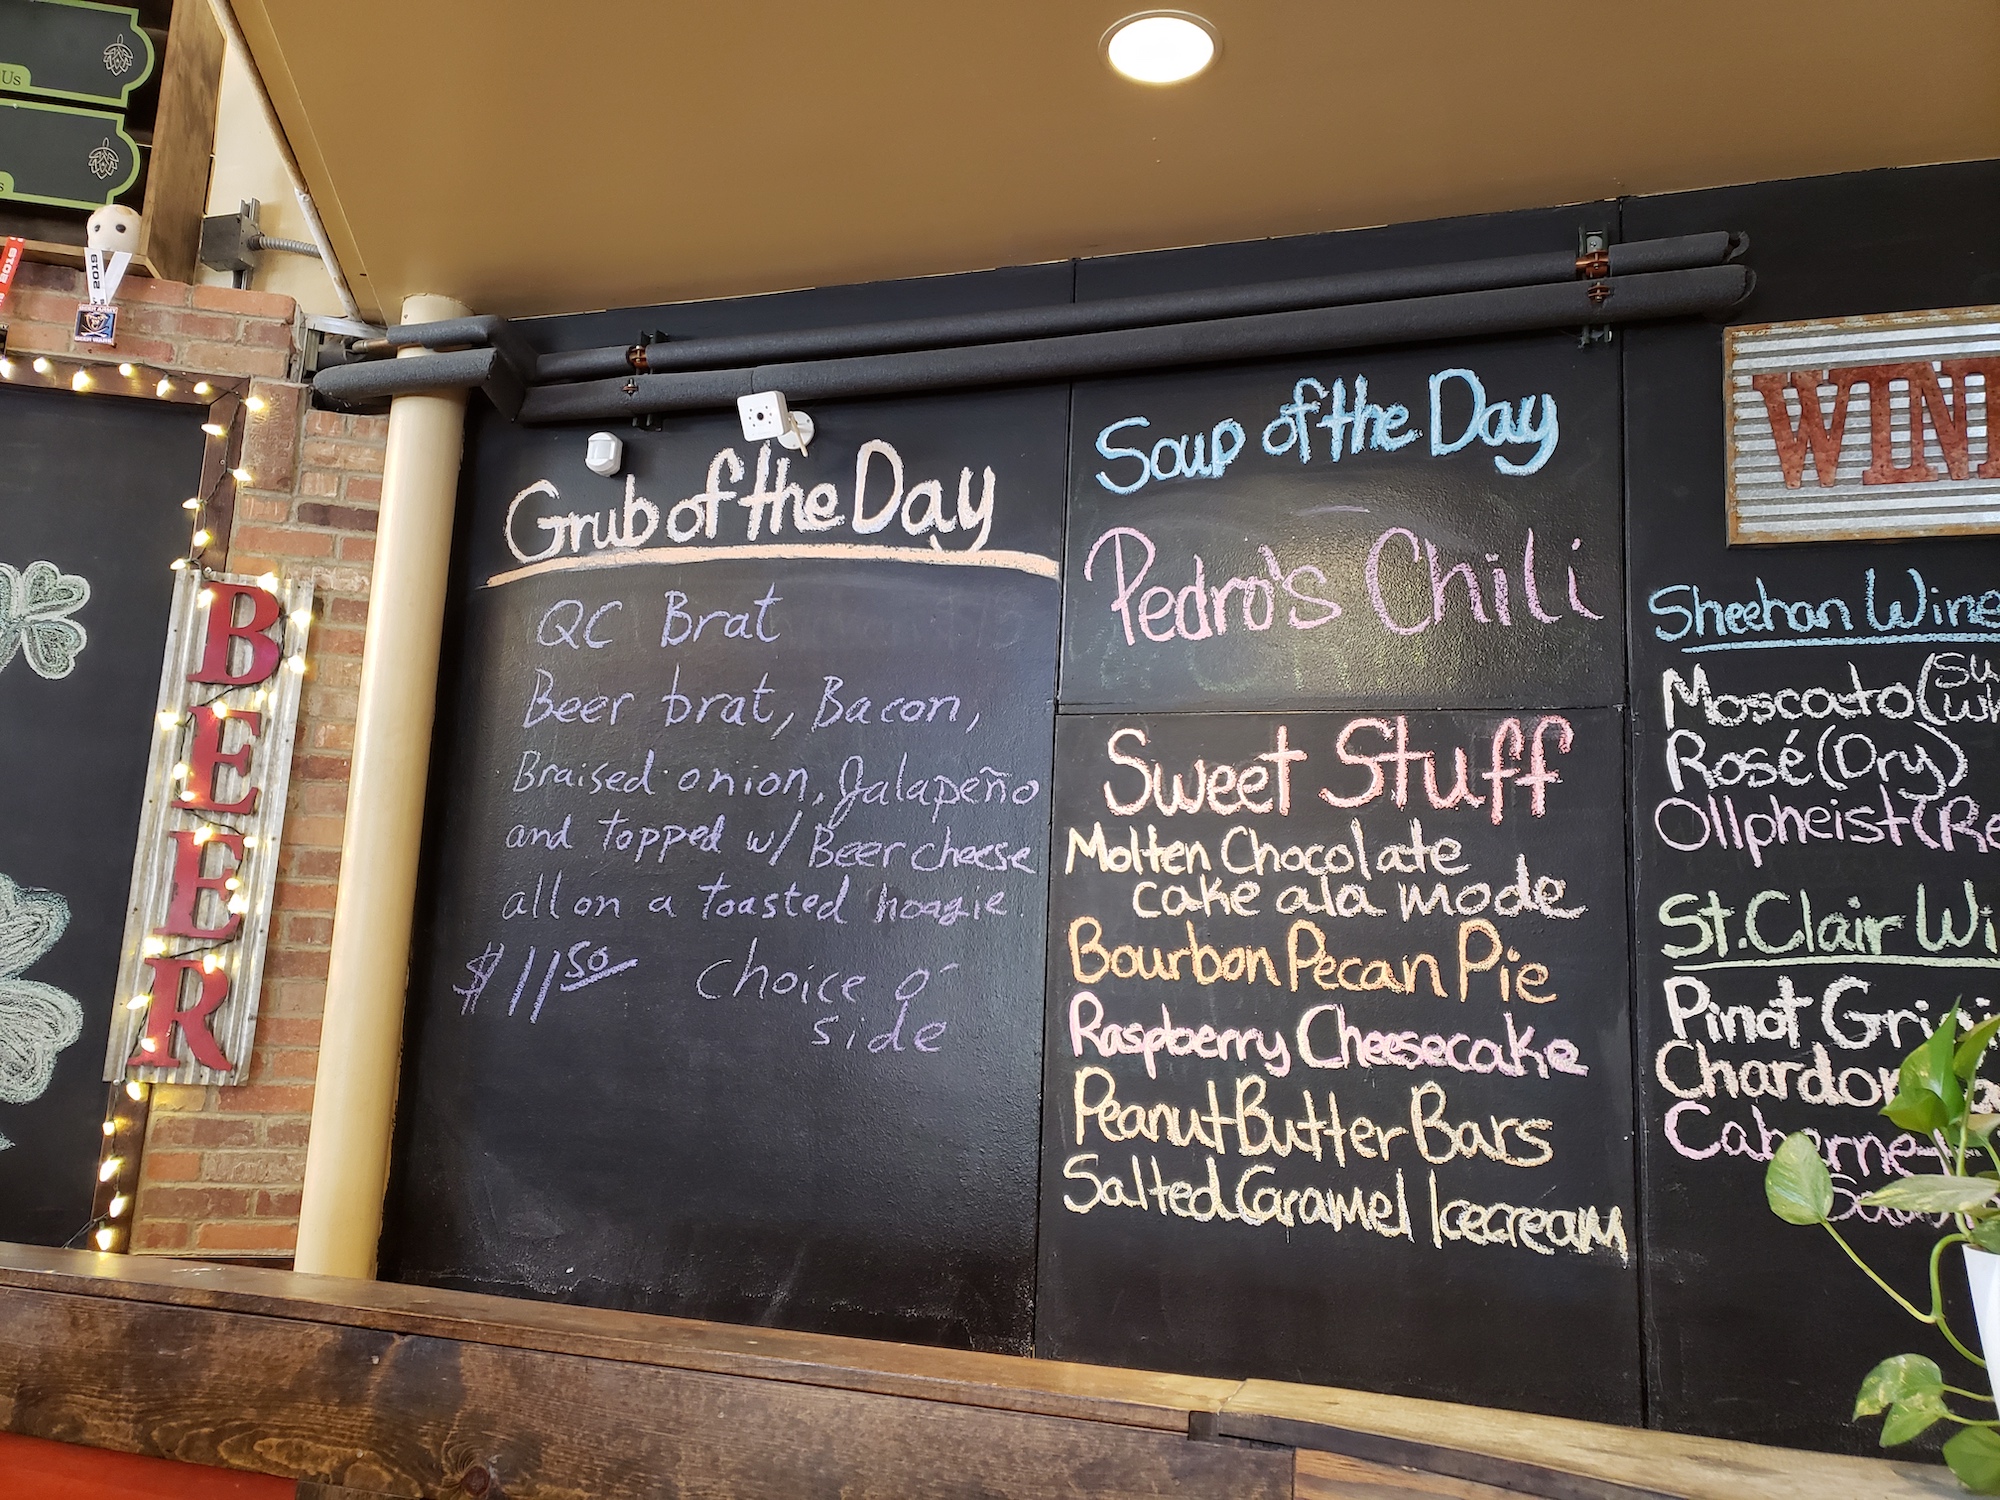 Us
s
2019
2019
BEER
Grub of the Day
QC Brat
Beer brat, Bacon,
Braised onion, Jalapeño
and topped w/ Beer cheese
all on a toasted hoagie
$11.50 choice o'
side
Soup of the Day
Pedro's Chili
Sweet Stuff
Molten Chocolate
cake ala mode
Bourbon Pecan Pie
Raspberry Cheesecake
Peanut Butter Bars
Salted Caramel Icecream
WIN
Sheehan Wine
Moscato (
Rosé (Dry)
Ollpheist (Re
St. Clair Wi
Pinot Gri
Chardon
Caberne